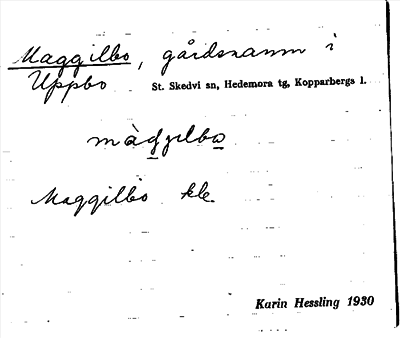 Maggilbo, gårdsnamn i
Uppbo St. Skedvi sn, Hedemora tg, Kopparbergs l.
Maggilbo kle
Karin Hessling 1930